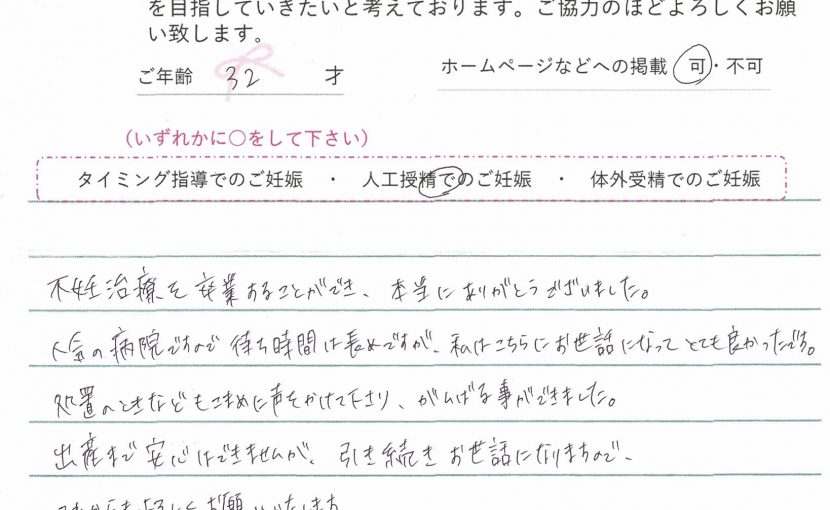 を目指していきたいと考えております。ご協力のほどよろしくお願
い致します。
ご年齢 32 才 ホームページなどへの掲載 可・不可
(いずれかに○をして下さい)
タイミング指導でのご妊娠 ・ 人工授精でのご妊娠 ・ 体外受精でのご妊娠
不妊治療を卒業することができ、本当にありがとうございました。
人気の病院ですので待ち時間は長めですが、私はこちらにお世話になってとても良かったです。
処置のときなどもこまめに声をかけて下さり、がんばる事ができました。
出産まで安心はできませんが、引き続きお世話になりますので、
これからもよろしくお願いいたします